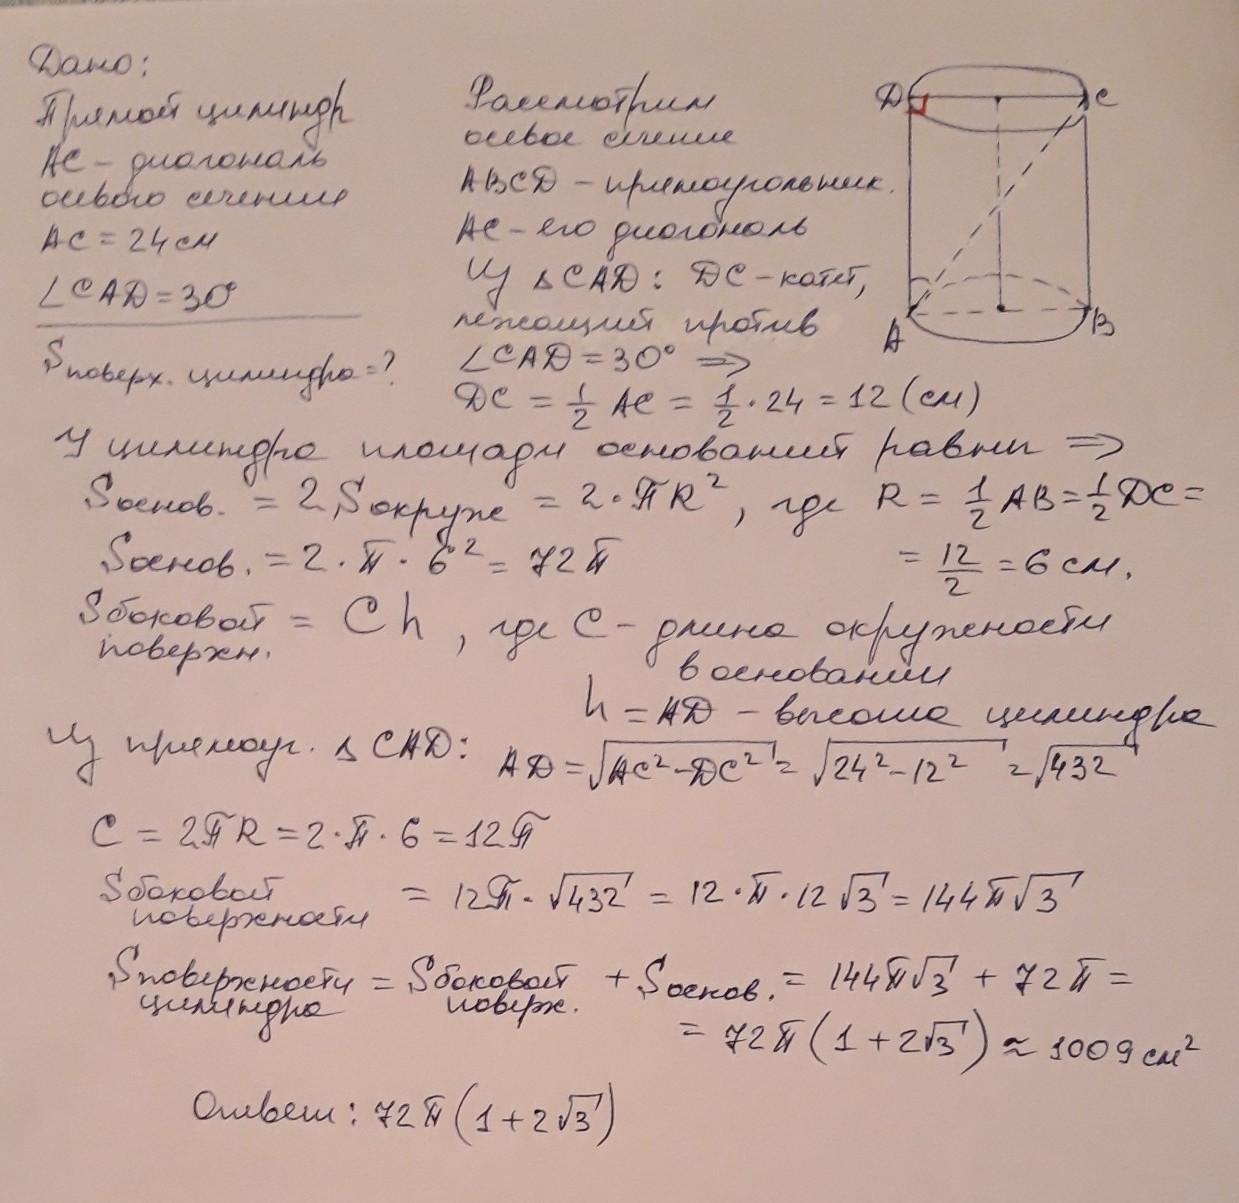 Дано:
Прямой цилиндр
AC - диагональ
осевого сечения
AC = 24 см
∠CAD = 30°
Sповерх. цилиндра = ?
Рассмотрим
осевое сечение
ABCD - прямоугольник.
AC - его диагональ
Из ΔCAD: DC - катет,
лежащий против
∠CAD = 30° ⇒
DC = 1/2 AC = 1/2 · 24 = 12 (см)
D
C
A
B
У цилиндра площади оснований равны ⇒
Sоснов. = 2Sокруж = 2 · πR², где R = 1/2 AB = 1/2 DC =
Sоснов. = 2 · π · 6² = 72π
= 12/2 = 6 см.
Sбоковой поверхн. = Ch, где C - длина окружности
в основании
h = AD - высота цилиндра
Из прямоуг. ΔCAD: AD = √(AC² - DC²) = √(24² - 12²) = √432
C = 2πR = 2 · π · 6 = 12π
Sбоковой поверхности = 12π · √432 = 12 · π · 12√3 = 144π√3
Sповерхности цилиндра = Sбоковой поверх. + Sоснов. = 144π√3 + 72π =
= 72π(1 + 2√3) ≈ 1009 см²
Ответ: 72π(1 + 2√3)